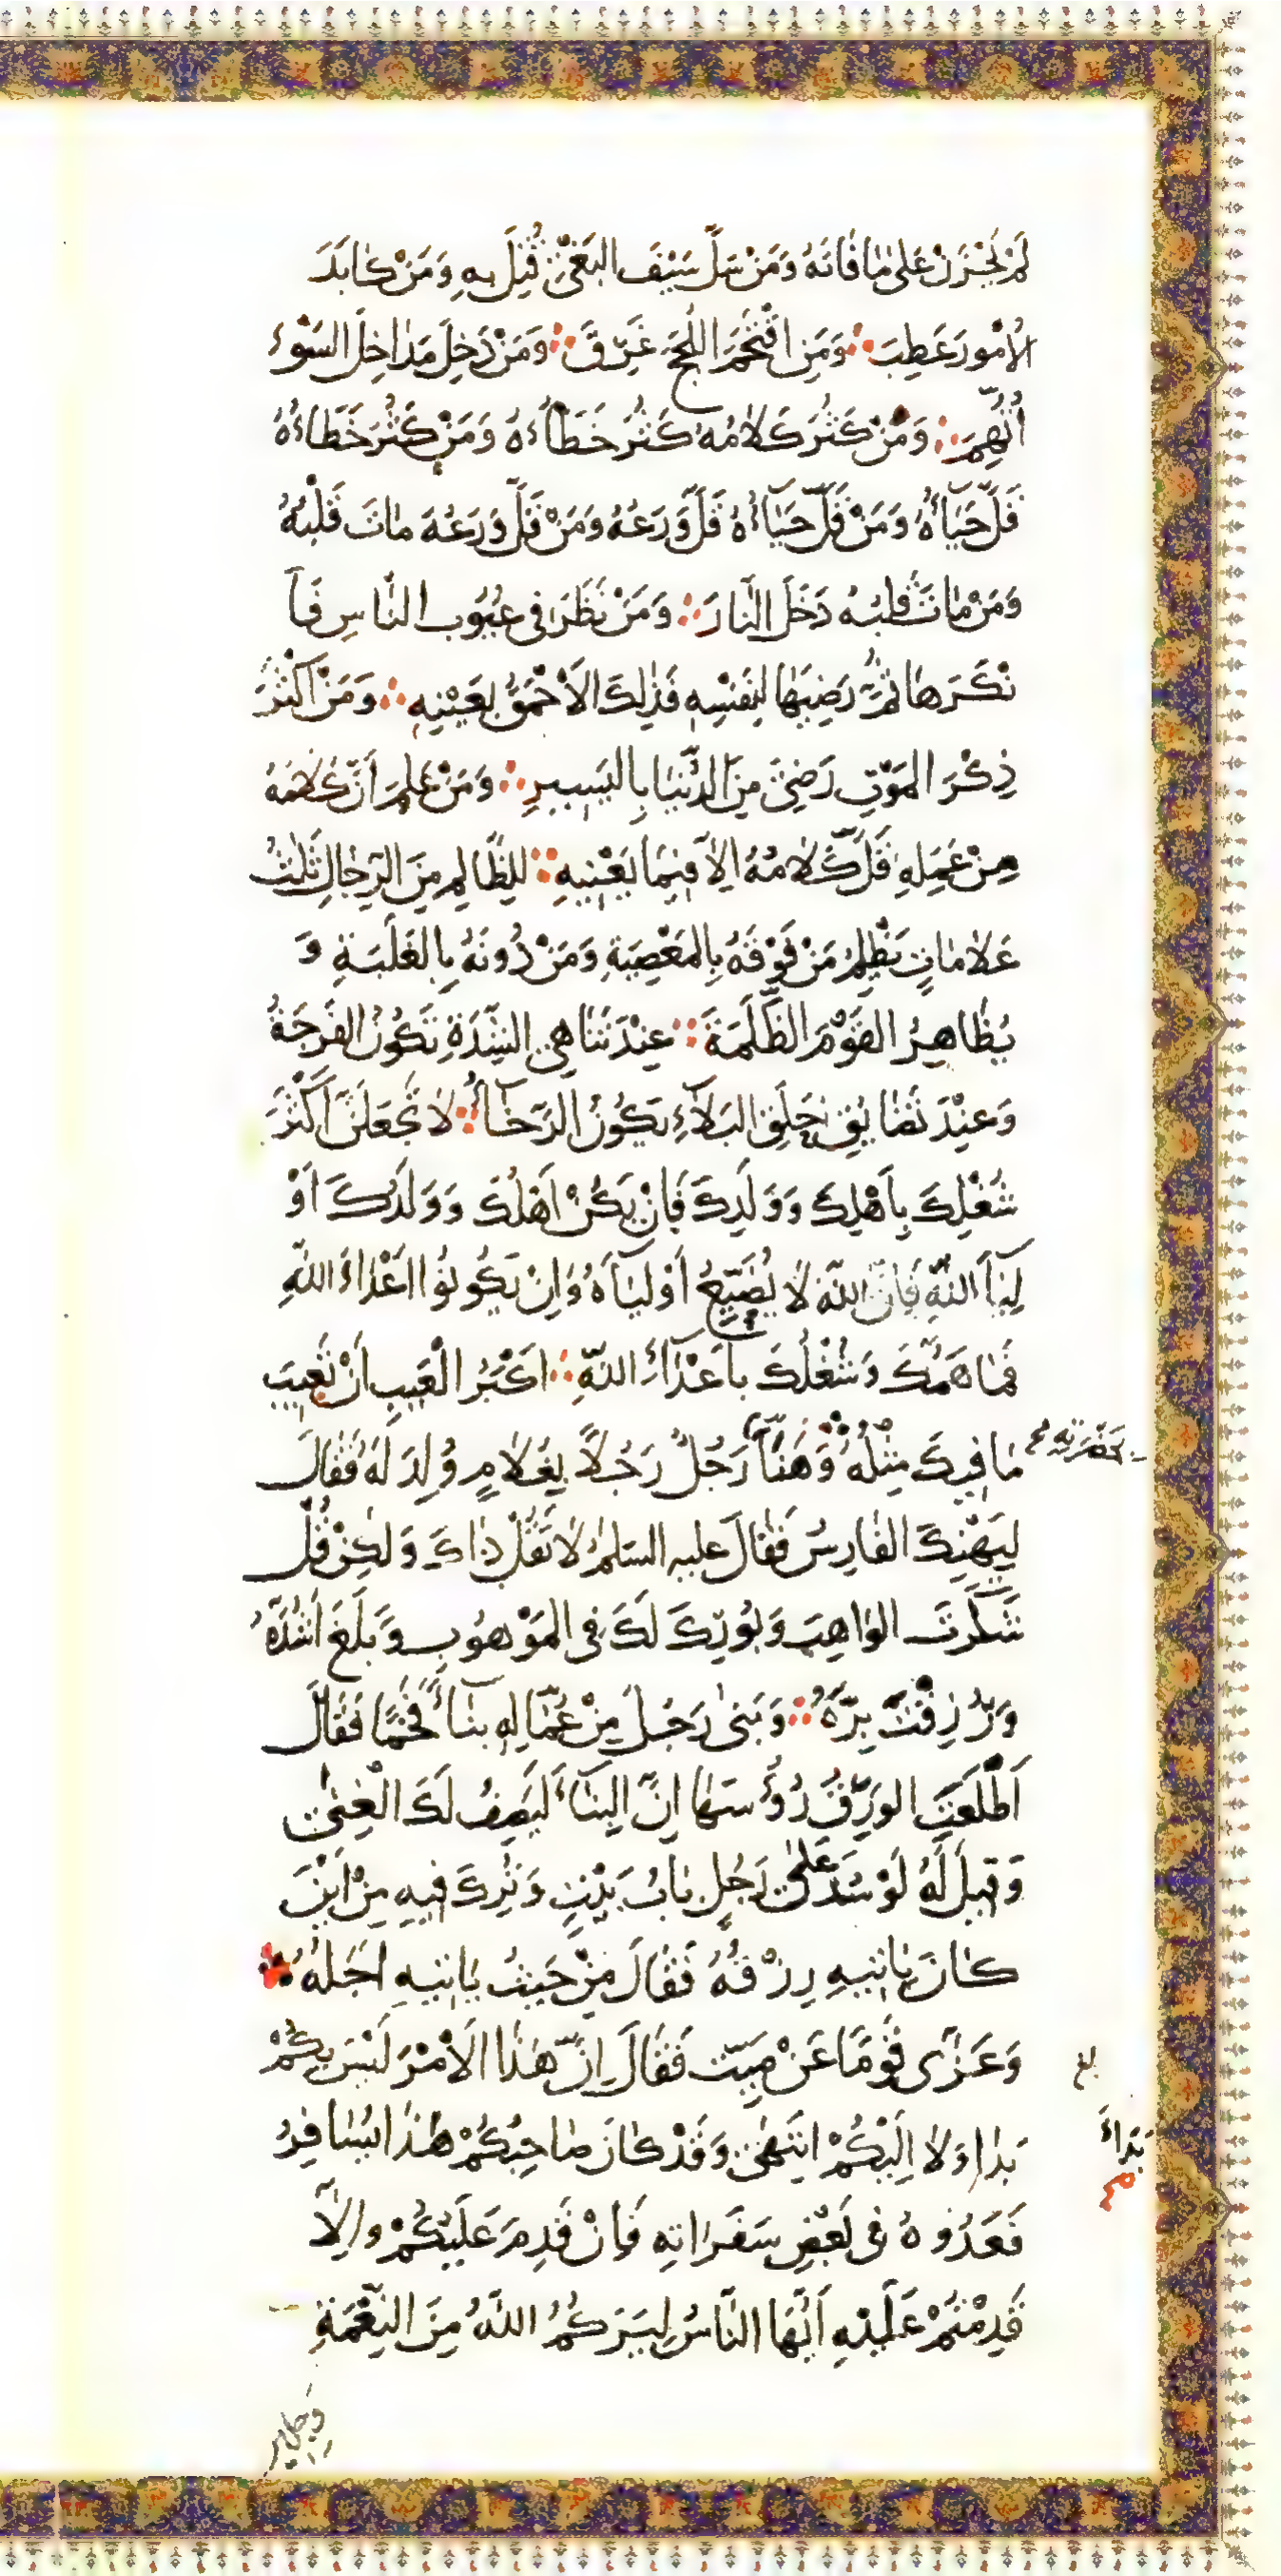 لَمْ يَحْزَنْ عَلىٰ مٰا فٰاتَهُ وَمَنْ سَلَّ سَيْفَ البَغْيِ قُتِلَ بِهِ وَمَنْ كٰابَدَ
الاُمُورَ عَطِبَ وَمَنِ اقْتَحَمَ اللُّجَجَ غَرِقَ وَمَنْ دَخَلَ مَدٰاخِلَ السَّوْءِ
اتُّهِمَ وَمَنْ كَثُرَ كَلٰامُهُ كَثُرَ خَطَاۤءُهُ وَمَنْ كَثُرَ خَطَاءُهُ
قَلَّ حَيَاۤءُهُ وَمَنْ قَلَّ حَيَاۤءُهُ قَلَّ وَرَعُهُ وَمَنْ قَلَّ وَرَعُهُ مٰاتَ قَلْبُهُ
وَمَنْ مٰاتَ قَلْبُهُ دَخَلَ النّٰارَ وَمَنْ نَظَرَ فى عُيُوبِ النّاسِ فَاَ
نْكَرَهٰا ثُمَّ رَضِيَهٰا لِنَفْسِهِ فَذٰلِكَ الاَحْمَقُ بِعَيْنِهِ وَمَنْ اَكْثَرَ
ذِكْرَ المَوْتِ رَضِىَ مِنَ الدُّنْيَا بِاليَسِيرِ وَمَنْ عَلِمَ اَنَّ كَلٰامَهُ
مِنْ عَمَلِهِ قَلَّ كَلٰامُهُ اِلاّٰ فِيمٰا يَعْنِيهِ لِلظّٰالِمِ مِنَ الرِّجٰالِ ثَلٰثُ
عَلٰامٰاتٍ يَظْلِمُ مَنْ فَوْقَهُ بِالمَعْصِيَةِ وَمَنْ دُونَهُ بِالغَلَبَةِ وَ
يُظٰاهِرُ القَوْمَ الظَّلَمَةَ عِنْدَ تَنٰاهِى الشِّدَّةِ تَكُونُ الفَرْجَةُ
وَعِنْدَ تَضٰايُقِ حَلَقِ البَلاَۤءِ يَكُونُ الرَّخَاۤءُ لاٰ تَجْعَلَنَّ اَكْثَرَ
شُغْلِكَ بِاَهْلِكَ وَوَلَدِكَ فَاِنْ يَكُنْ اَهْلُكَ وَوَلَدُكَ اَوْ
لِيَاۤءَ اللّٰهِ فَاِنَّ اللّٰهَ لاٰ يُضَيِّعُ اَوْلِيَاۤءَهُ وَاِنْ يَكُونُوا اَعْدٰاءَ اللّٰهِ
فَمٰا هَمُّكَ وَشُغْلُكَ بِاَعْدَاۤءِ اللّٰهِ اَكْبَرُ الْعَيْبِ اَنْ تَعِيبَ
مٰا فِيكَ مِثْلُهُ وَهَنَّاَ رَجُلٌ رَجُلاً بِغُلٰامٍ وُلِدَ لَهُ فَقٰالَ
بحَضْرَتِهِ
لِيَهْنِكَ الفٰارِسُ فَقٰالَ عليه السلم لاٰ تَقُلْ ذٰاكَ وَلٰكِنْ قُلْ
شَكَرْتَ الوٰاهِبَ وَبُورِكَ لَكَ فِى المَوْهُوبِ وَبَلَغَ اَشُدَّهُ
وَرُزِقْتَ بِرَّهُ وَبَنىٰ رَجُلٌ مِنْ عُمّٰالِهِ بِنَاۤءً فَخْمًا فَقٰالَ
اَطْلَعَتِ الوَرِقُ رُؤُسَهٰا اِنَّ البِنَاۤءَ لَيَصِفُ لَكَ الْغِنىٰ
وَقِيلَ لَهُ لَوْ سُدَّ عَلىٰ رَجُلٍ بٰابُ بَيْتٍ وَتُرِكَ فِيهِ مِنْ اَيْنَ
كٰانَ يٰاتِيهِ رِزْقُهُ فَقٰالَ مِنْ حَيْثُ يٰاتِيهِ اَجَلُهُ
وَعَزّٰى قَوْمًا عَنْ مَيِّتٍ فَقٰالَ اِنَّ هٰذٰا الاَمْرَ لَيْسَ بِكُمْ
بلغ
بَدٰاءَ وَلاٰ اِلَيْكُمْ انْتَهٰى وَقَدْ كٰانَ صٰاحِبُكُمْ هٰذٰا يُسٰافِرُ
بَدَاءَ
فَعَدُّوهُ فى بَعْضِ سَفَرٰاتِهِ فَاِنْ قَدِمَ عَلَيْكُمْ وَاِلاّٰ
قَدِمْتُمْ عَلَيْهِ اَيُّهَا النّٰاسُ لِيَرَكُمُ اللّٰهُ مِنَ النِّعْمَةِ
وَجِلِينَ